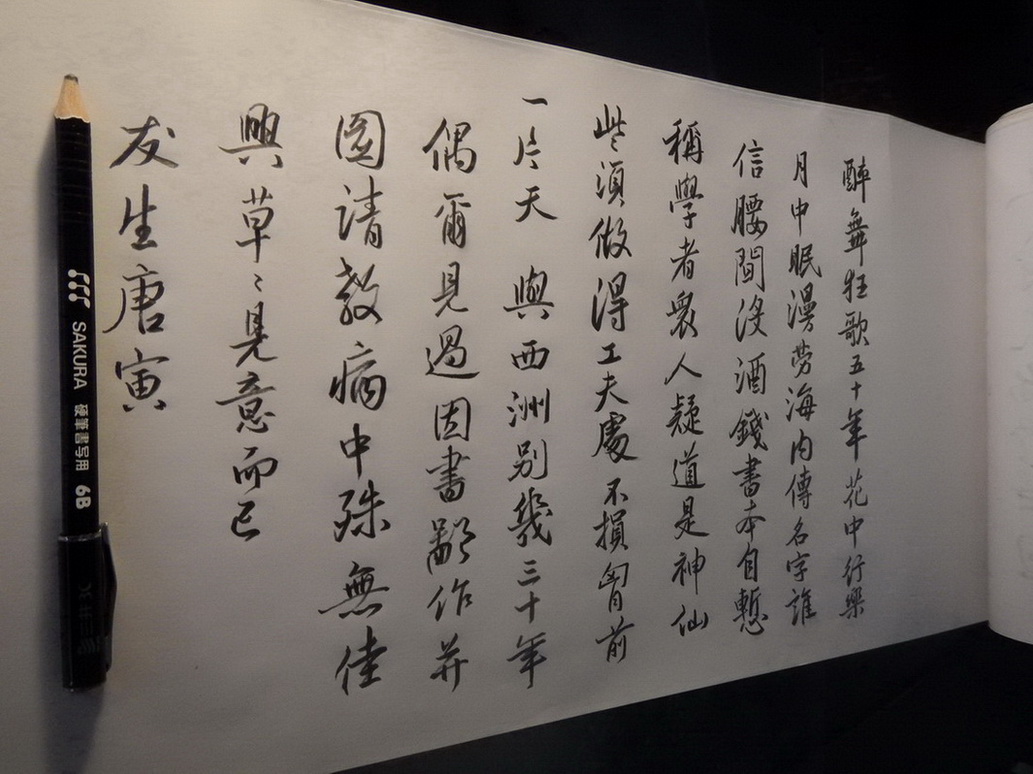 醉舞狂歌五十年花中行樂
月中眠漫勞海內傳名字誰
信腰間沒酒錢書本自慙
稱學者衆人疑道是神仙
些須做得工夫處不損胷前
一片天 與西洲別幾三十年
偶爾見過因書鄙作并
圖請教病中殊無佳
興草〻見意而已
友生唐寅
SAKURA 硬筆書写用 6B